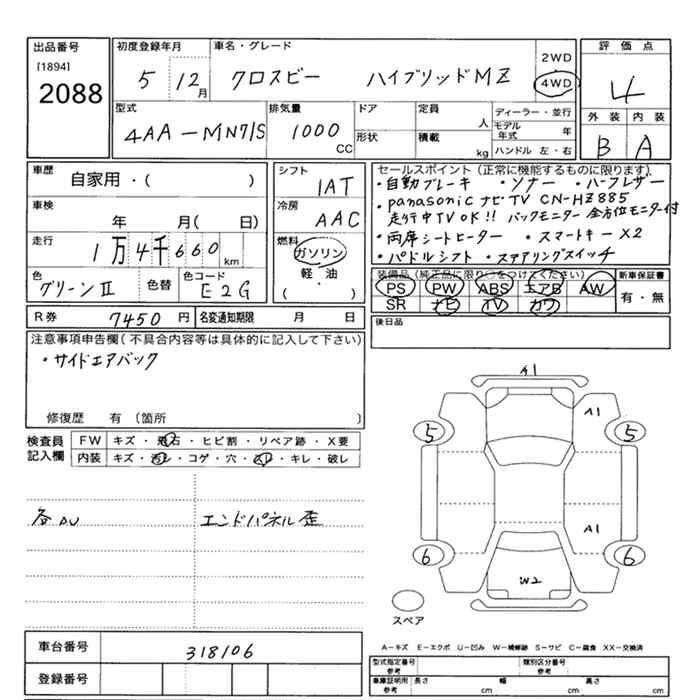 出品番号
[1894]
2088
初度登録年月
5 12月
車名・グレード
クロスビー ハイブリッドMZ
2WD
4WD
評価点
4
外装 内装
B A
型式
4AA-MN71S
排気量
1000
CC
ドア
形状
定員
人
積載
kg
ディーラー・並行
モデル年式 年
ハンドル 左・右
車歴
自家用・( )
車検
年 月( 日)
走行
1万4千660km
色
グリーンⅡ
色替
色コード
E2G
シフト
IAT
冷房
AAC
燃料
ガソリン
軽・油
・
( )
セールスポイント(正常に機能するものに限ります)
・自動ブレーキ ・ソナー ・ハーフレザー
・panasonicナビTV CN-HZ885
走行中TVOK!! バックモニター 全方位モニター付
・両席シートヒーター ・スマートキーX2
・パドルシフト ・ステアリングスイッチ
装備品(純正品に限り○をつけてください)
PS PW ABS エアB AW
SR ナビ TV カワ
新車保証書
有・無
R券 7450円
名変通知期限 月 日
後日品
注意事項申告欄(不具合内容等は具体的に記入して下さい)
・サイドエアバック
修復歴 有(箇所 )
検査員記入欄
FW キズ・飛石・ヒビ割・リペア跡・X要
内装 キズ・汚レ・コゲ・穴・スレ・キレ・破レ
各AU
エンドパネル歪
A1
A1
5 5
A1
6 6
W2
スペア
A-キズ E-エクボ U-凹み W-補修跡 S-サビ C-腐食 XX-交換済
車台番号
318106
登録番号
型式指定番号
参考
類別区分番号
参考
車庫証明用
参考
長さ cm 幅 cm 高さ cm